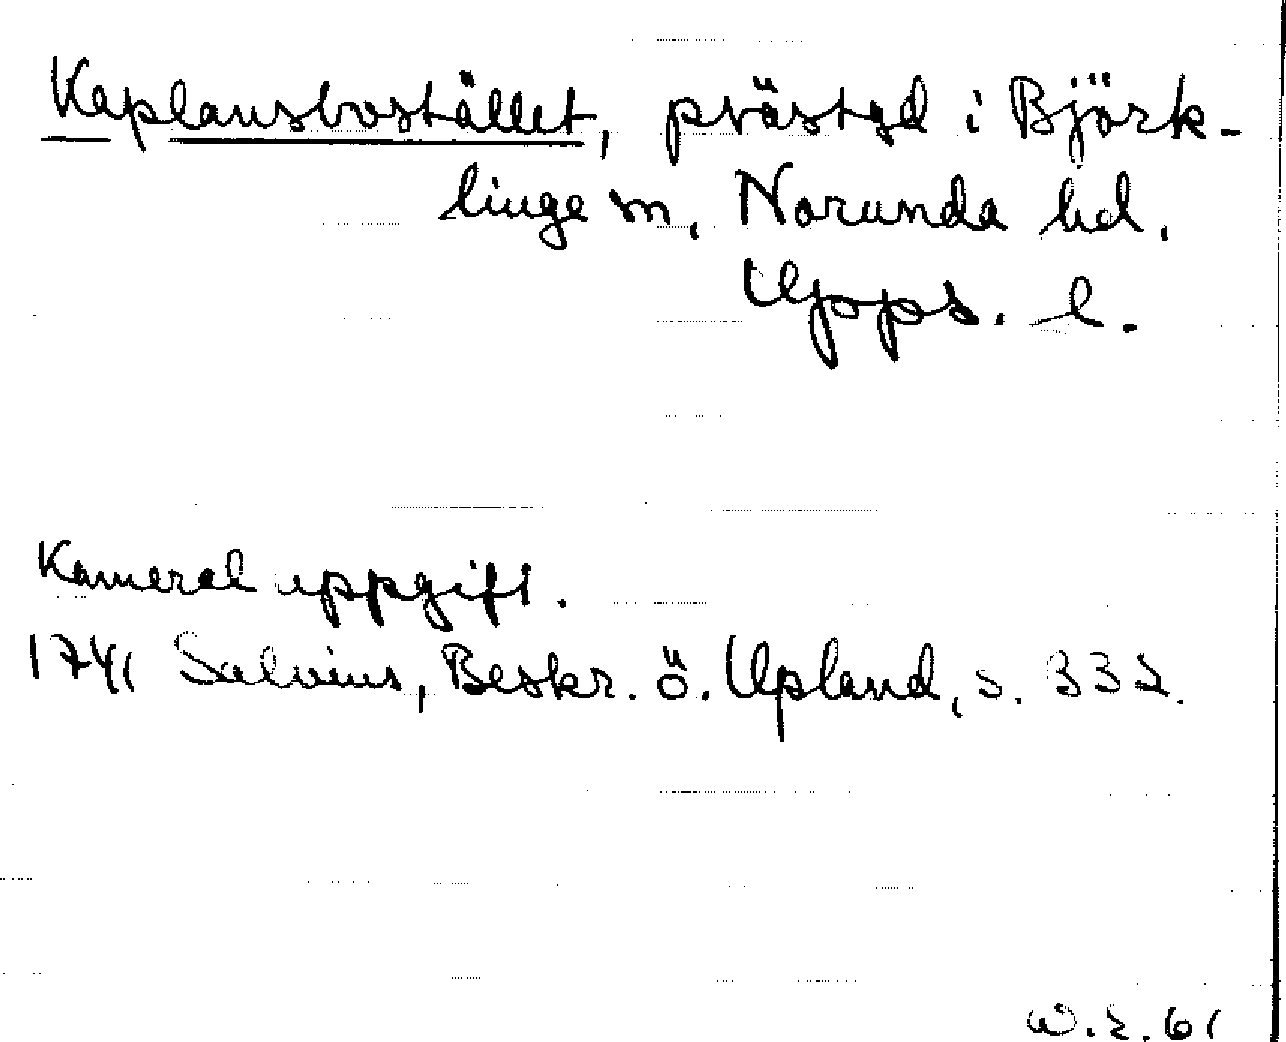 Kaplansbostället, prästgd i Björk-
linge sn, Norunda hd.
Upps. l.
Kameral uppgift.
1741 Salvius, Beskr. ö. Upland, s. 332.
W.E. 61